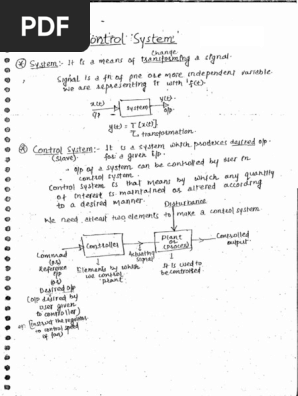 PDF
Control 'System'
Change
System:- It is a means of transforming a signal.
Signal is a fn of one or more independent variable.
we are representing it with 'f(t)'.
x(t) System y(t)
i/p o/p
y(t) = T[x(t)]
transformation.
Control System:- It is a system which produces desired o/p
(Slave) for a given i/p.
o/p of a system can be controlled by user in
control system.
Control system is that means by which any quantity
of interest is maintained or altered according
to a desired manner.
We need atleast two elements to make a control system.
Disturbance
Controller
Plant
or
(process)
Controlled
output
Command
(or)
Reference
i/p
(or)
Desired o/p
(o/p desired by
user given
to controller)
to control speed
of fan)
Actuating
signal
Elements by which
we control
plant.
It is used to
be controlled.